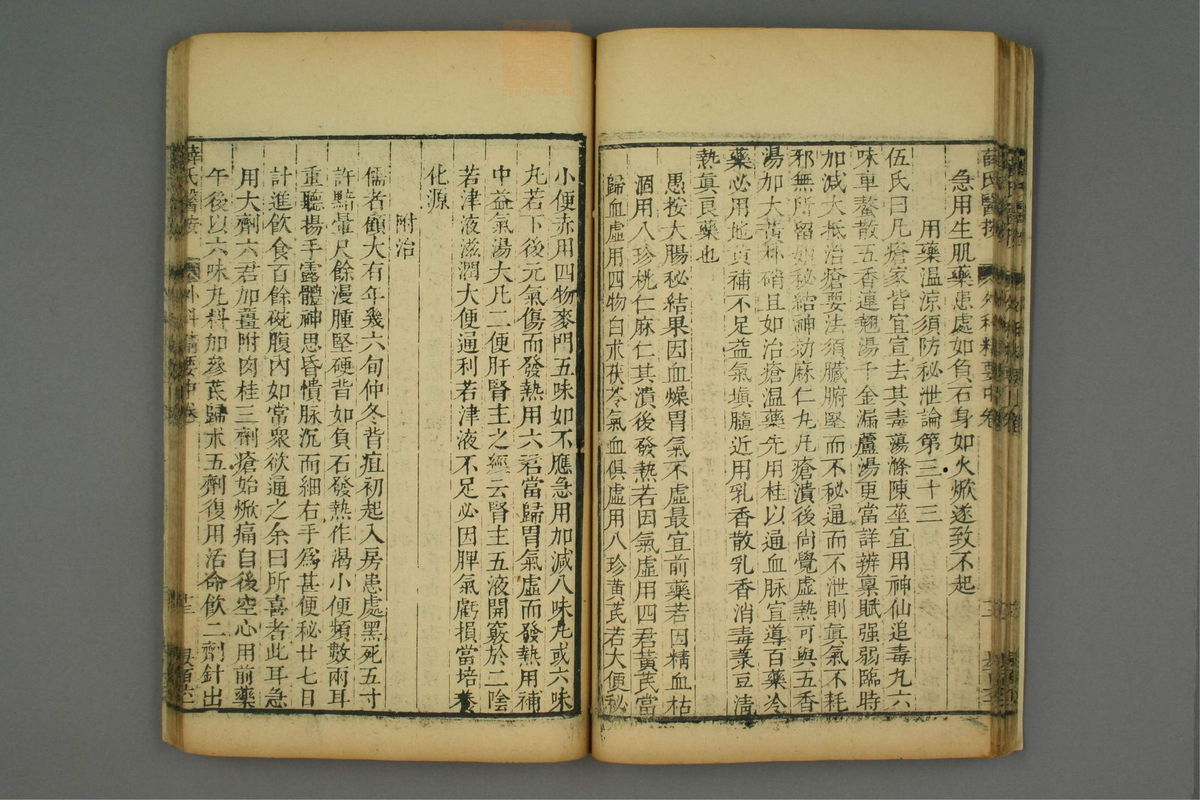 急用生肌藥患處如負石身如火焮遂致不起
用藥温涼須防秘泄論第三十三
伍氏曰凡瘡家皆宜宣去其毒蕩滌陳莝宜用神仙追毒丸六
味車螯散五香連翹湯千金漏蘆湯更當詳辨稟賦强弱臨時
加減大抵治瘡要法須臟腑堅而不秘通而不泄則眞氣不耗
邪無所留如秘結神効麻仁丸凡瘡潰後尚覺虛熱可與五香
湯加大黃朴硝且如治瘡温藥先用桂以通血脉宜導百藥冷
藥必用地黃補不足益氣塡髓近用乳香散乳香消毒菉豆淸
熱眞良藥也
愚按大腸秘結果因血燥胃氣不虛最宜前藥若因精血枯
涸用八珍桃仁麻仁其潰後發熱若因氣虛用四君黃芪當
歸血虛用四物白朮茯苓氣血俱虛用八珍黃芪若大便秘
小便赤用四物麥門五味如不應急用加減八味丸或六味
丸若下後元氣傷而發熱用六君當歸胃氣虛而發熱用補
中益氣湯大凡二便肝腎主之經云腎主五液開竅於二陰
若津液滋潤大便通利若津液不足必因脾氣虧損當培養
化源
附治
儒者顧大有年幾六旬仲冬背疽初起入房患處黑死五寸
許黯暈尺餘漫腫堅硬背如負石發熱作渴小便頻數兩耳
重聽揚手露體神思昏憒脉沉而細右手爲甚便秘廿七日
計進飲食百餘碗腹內如常衆欲通之余曰所喜者此耳急
用大劑六君加薑附肉桂三劑瘡始焮痛自後空心用前藥
午後以六味丸料加參芪歸朮五劑復用活命飲二劑針出
薛氏醫按 外科精要中卷